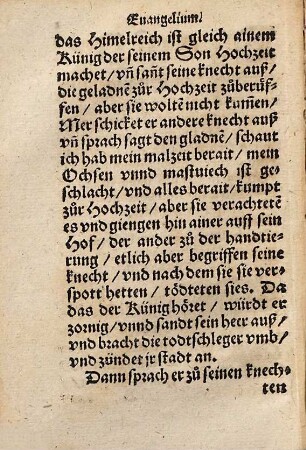 Euangelium.
das Himelreich ist gleich ainem
Künig der seinem Son Hochzeit
machet / vñ sañt seine knecht auß /
die geladnē zůr Hochzeit zůberůf-
fen / aber sie woltē nicht kumen /
Mer schicket er andere knecht auß
vñ sprach sagt den gladnē / schaut
ich hab mein malzeit berait / mein
Ochsen vnnd mastuiech ist ge-
schlacht / vnd alles berait / kumpt
zůr Hochzeit / aber sie verachtetē
es vnd giengen hin ainer auff sein
Hof / der ander zů der handtie-
rung / etlich aber begriffen seine
knecht / vnd nach dem sie sie ver-
spott hetten / tödteten sies. Da
das der Künig höret / würdt er
zornig / vnnd sandt sein heer auß /
vnd bracht die todtschleger vmb /
vnd zündet jr stadt an.
Dann sprach er zů seinen knech-
ten